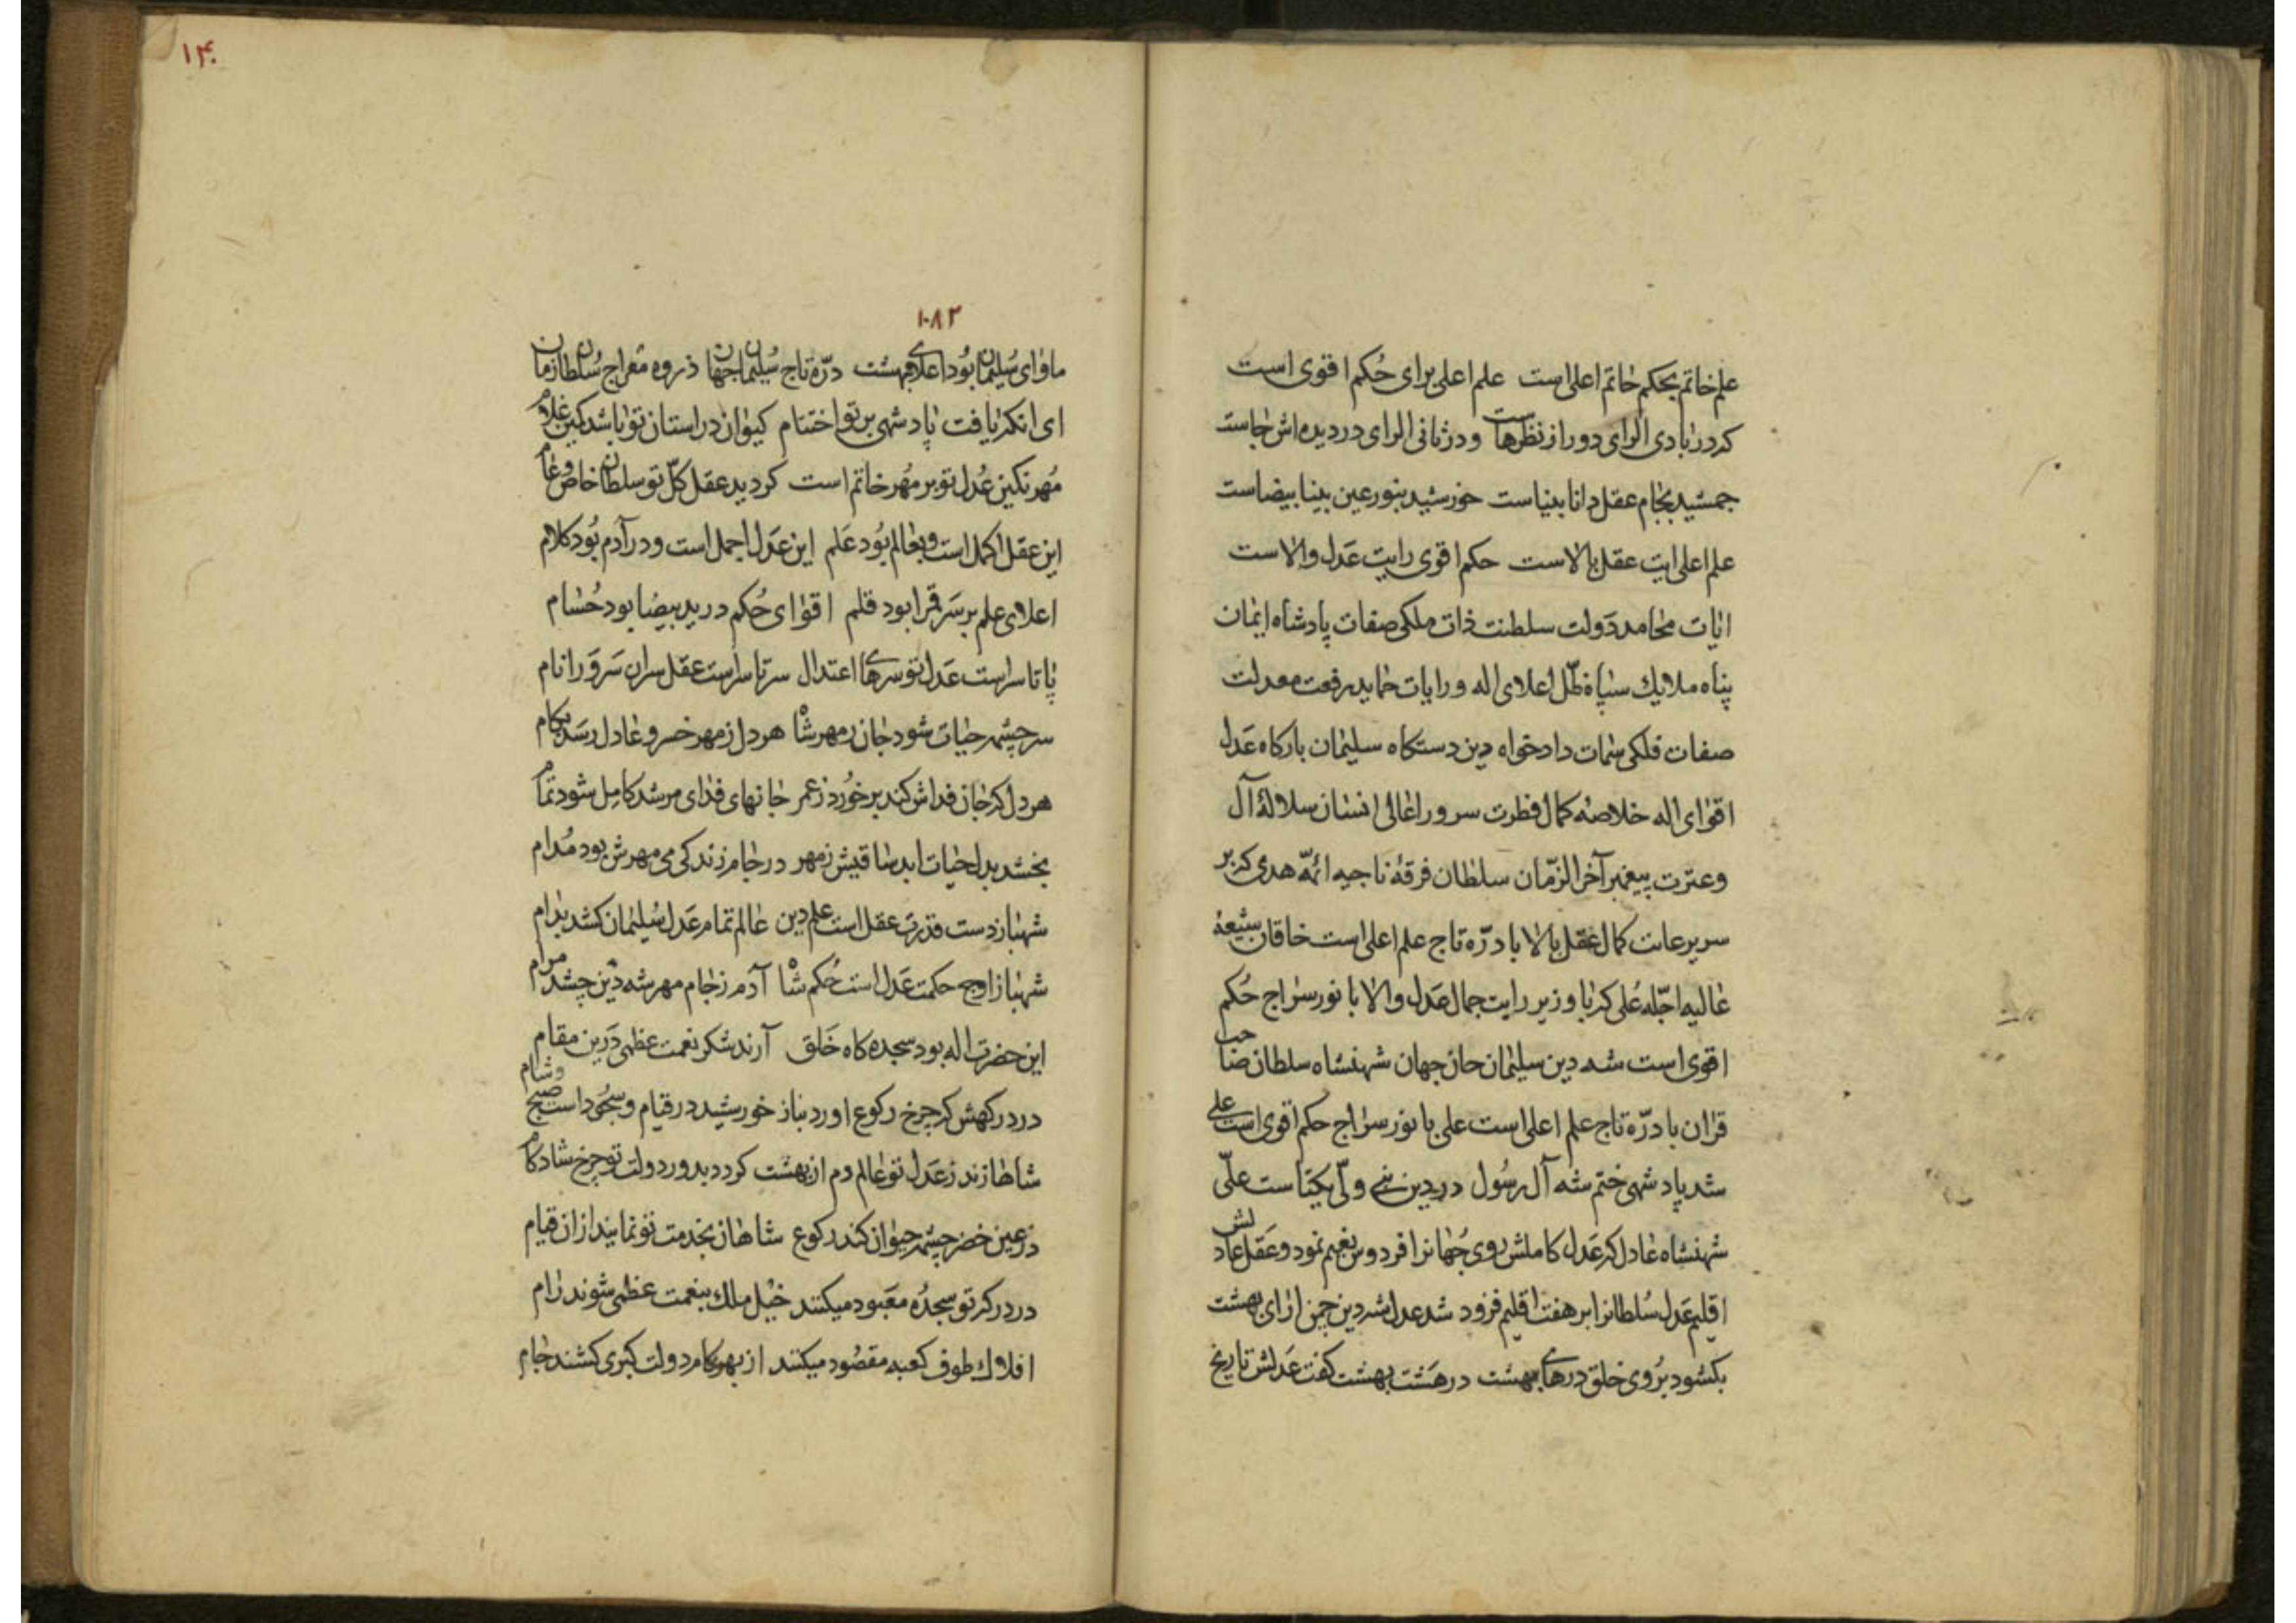 علم خاتم بحکم خاتم اعلی است علم اعلی برای حُکم اقوی است
که در بادی الرای دور از نظرهاست ودر ثانی الرای در دیده اش جاست
جمشید بجام عقل دانا بیناست خورشید بنور عین بینا بیضاست
علم اعلی ایت عقل بالاست حکم اقوی رایت عَدل والاست
ایات محامد دَولت سلطنت ذات ملکی صفات پادشاه ایمان
پناه ملایك سپاه ظلّ اعلای اله ورایات حماید رفعت معدلت
صفات فلکی سمات دادخواه دین دستکاه سلیمان بارکاه عَدل
اقوای اله خلاصهٔ کمال فطرت سرور اعالی انسان سلالهٔ آل
وعترت پیغمبر آخر الزّمان سلطان فرقهٔ ناجیه ائمّه هدی که بر
سریر عانت کمال عقل بالا با درّه تاج علم اعلی است خاقان شیعهٔ
عالیه اجلّه عُلی کبریا وزیر رایت جمال عدل والا با نور سراج حُکم
اقوی است شه دین سلیمان جان جهان شهنشاه سلطان صاحب
قران با درّه تاج علم اعلی است علی با نور سراج حکم اقوی است علی
شد پادشهی ختم شه آل رسُول در دین نبی ولّی یکتاست علّی
شهنشاه عادل که عَدل کاملش روی جُهانرا فردوس نعیم نمود وعَقل عادلش
اقلیم عَدل سُلطانرا بر هفت اقلیم فزود شد عدل شه دین چمن ارای بهشت
بکشود برُوی خلق درهای بهشت در هَشت بهشت کفت عَدلش تاریخ
۱۴۰
۱۰۸۲
ماوای سُلیمان بُود اعلای بهشت درّه تاج سُلیمان جهان ذروه معراج سُلطان زمان
ای انکه یافت پادشهی بر تو اختتام کیوان در استان تو باشد کمین غلام
مُهر نکین عُدل تو بر مُهر خاتم است کردید عقل کلّ تو سلطان خاص وعام
این عقل اکمل است وبعالم بُود عَلم این عَدل اجمل است ودر آدم بُود کلام
اعلای علم بر سَر قرا بود قلم اقوای حُکم در ید بیضا بود حُسام
پا تا سر است عَدل تو سرهای اعتدال سر تا سر است عقل سران سَروَر انام
سر چشمه حیات شود جان ز مهر شاه هر دل ز مهر خسرو عادل رسَد بکام
هر دل که جان فداش کند بر خُورد ز عمر جانهای فدای مرشد کامِل شود تمام
بخشد بدل حیات ابد ساقیش ز مهر در جام زندکی می مهرش بود مُدام
شهباز دست قدرت عقل است علم دین عالم تمام عَدل سُلیمان کشد بدام
شهباز اوج حکمت عَدل است حُکم شاه آدم ز جام مهر شه دین چشد مرام
این حضرت اله بود سجده کاه خَلق آرند شکر نعمت عظمی دَرین مقام
در درکهش که چرخ رکوع اورد بناز خورشید در قیام وسجود است صبح وشام
شاها زند ز عَدل تو عالم دم از بهشت کردد بدور دولت تو چرخ شادکام
در عین خضر چشمه حیوان کند رکوع شاهان بخدمت تو نمایند ازان قیام
در درکه تو سجدُه معَبود میکنند خیْل ملك بنعمت عظمی شوند رام
افلاك طوف کعبه مقصُود میکنند از بهر کام دولت کبری کشند جام